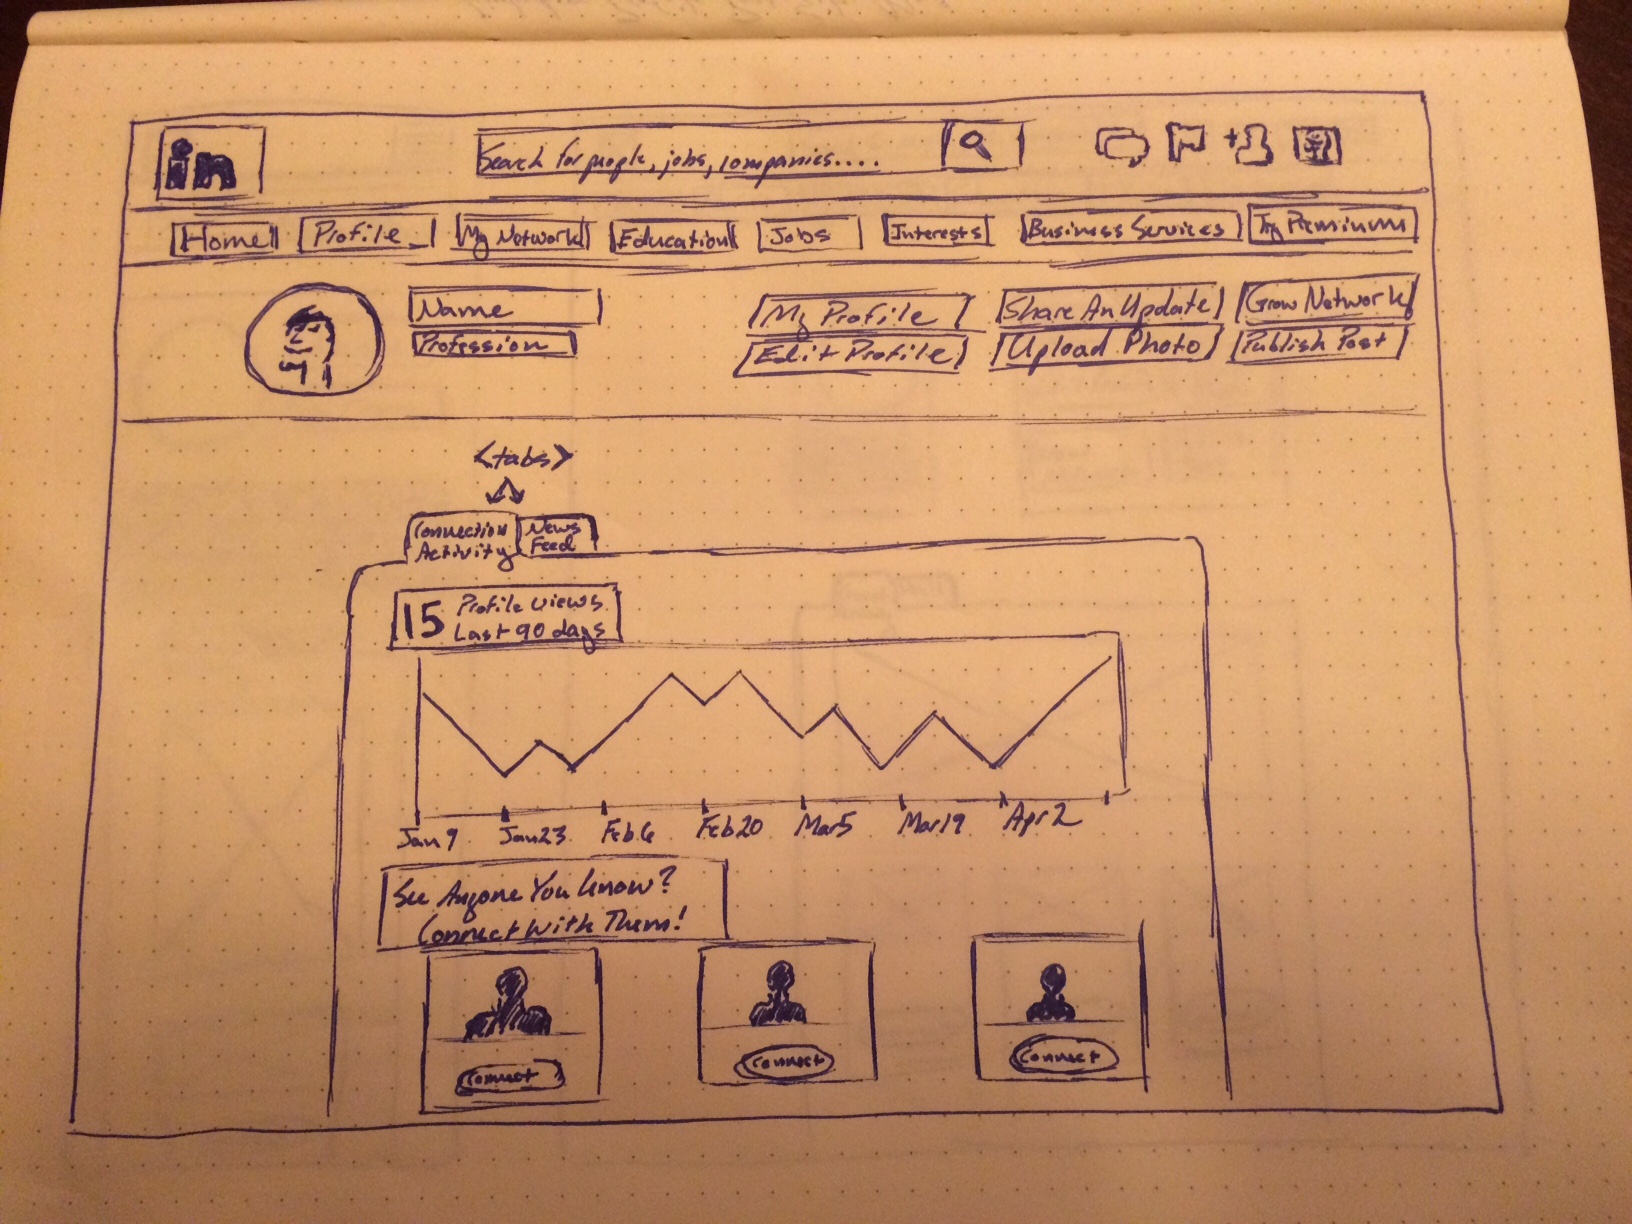 in
Search for people, jobs, companies....
Home Profile My Network Education Jobs Interests Business Services Try Preminum
Name
Profession
My Profile Share An Update Grow Network
Edit Profile Upload Photo Publish Post
<tabs>
Connection Activity
News Feed
15 Profile views
Last 90 days
Jan 9 Jan 23 Feb 6 Feb 20 Mar 5 Mar 19 Apr 2
See Anyone You know?
Connect With Them!
Connect Connect Connect